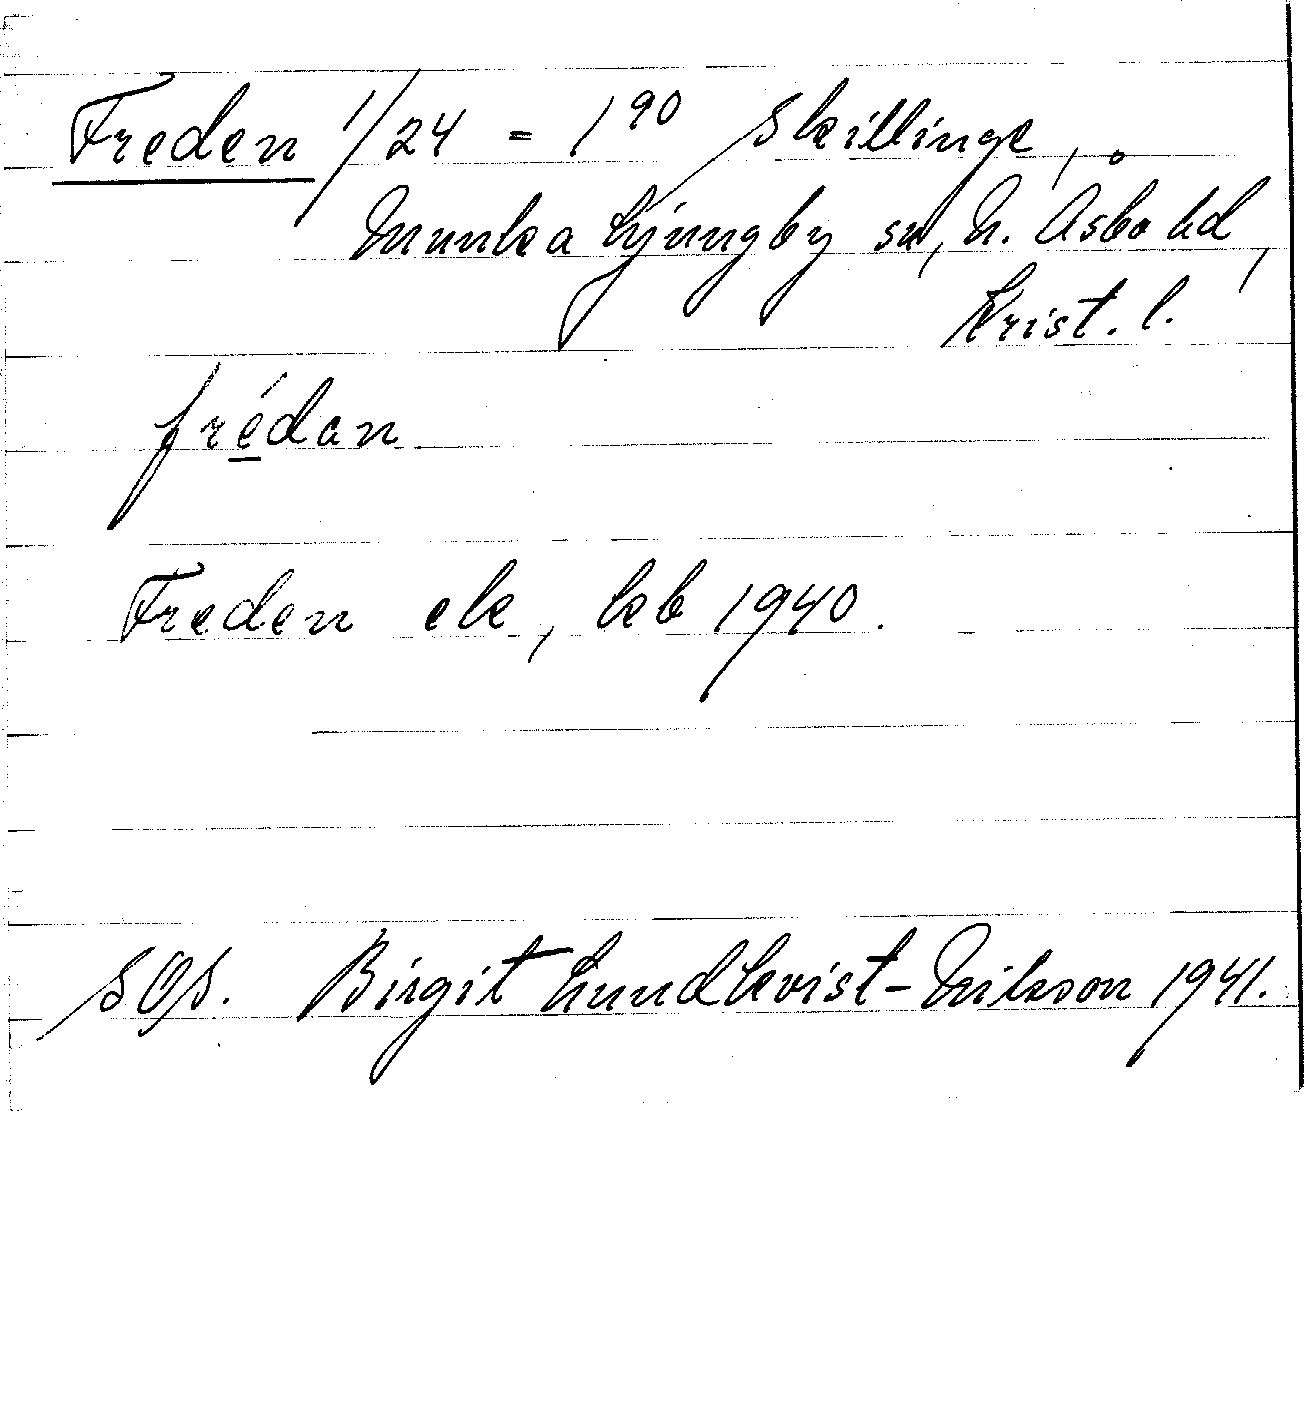 Freden 1/24 = 1⁹⁰ Skillinge,
Munka Ljungby sn, N. Åsbo hd,
Krist. l.
frédan
Freden ek, kb 1940.
SOS. Birgit Lundkvist-Nilsson 1941.